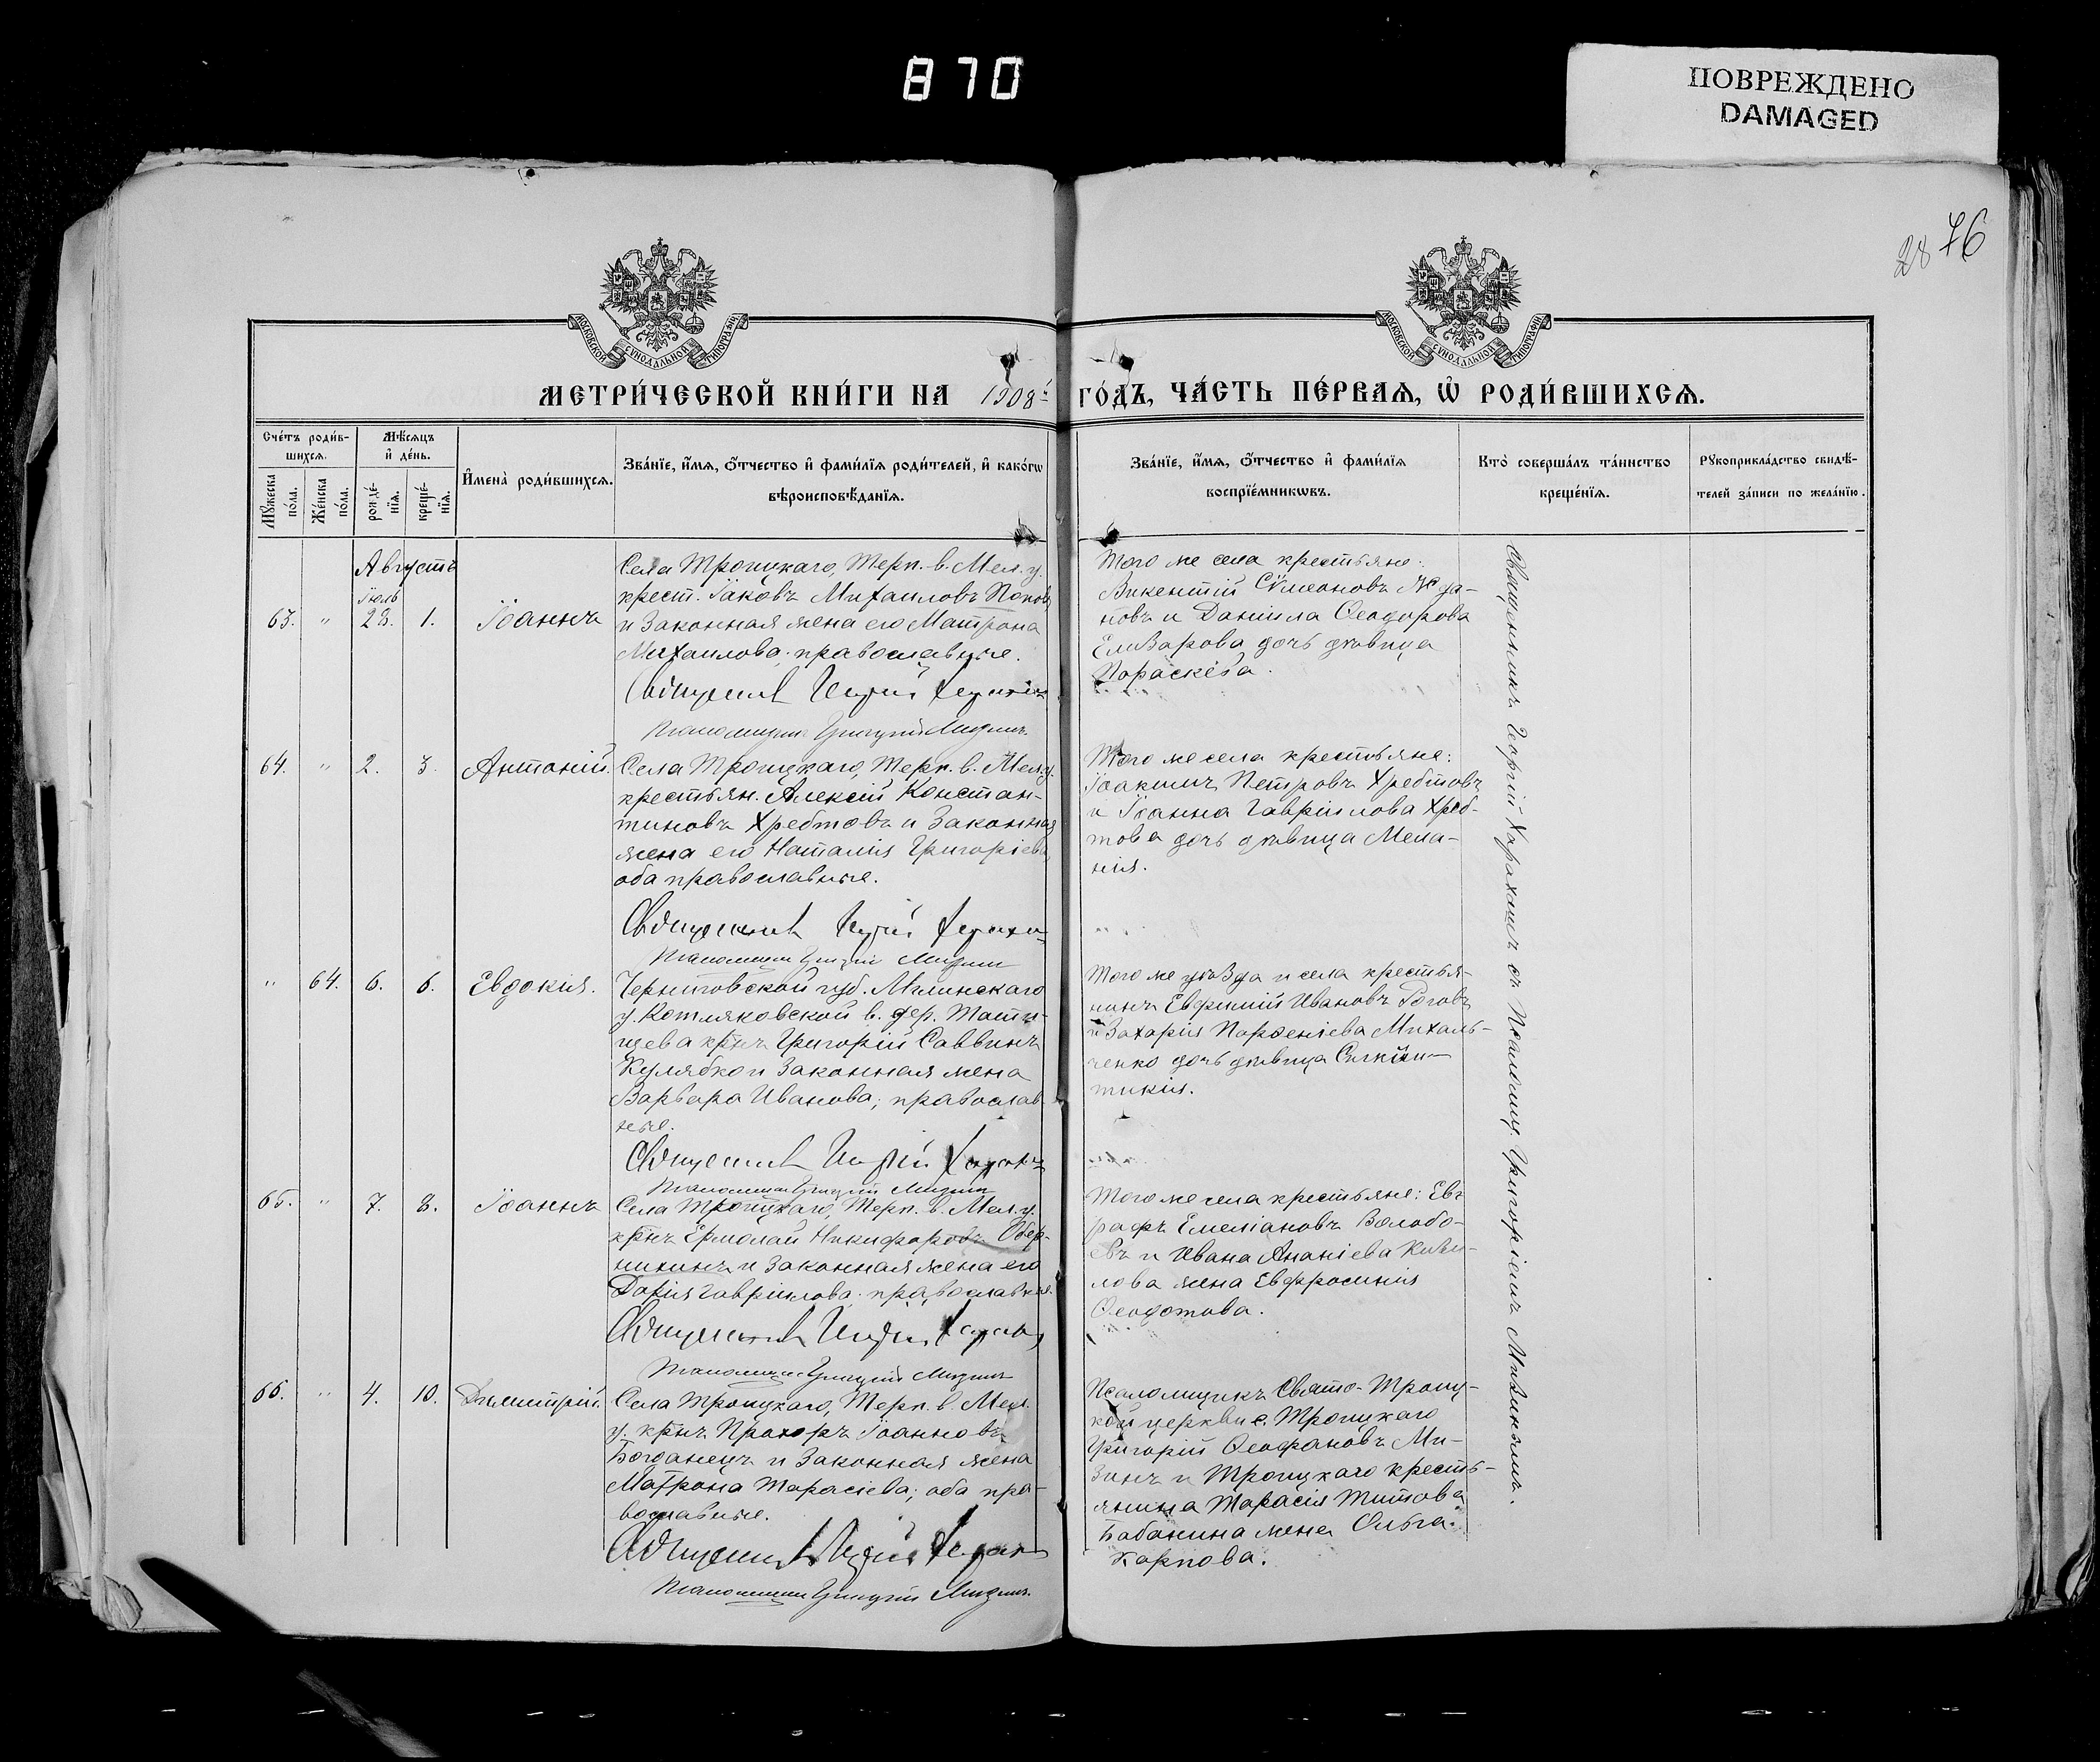 870
ПОВРЕЖДЕНО
DAMAGED
28 76
МОСКОВСКОЙ СѴНОДАЛЬНОЙ ТИПОГРАФІИ
МОСКОВСКОЙ СѴНОДАЛЬНОЙ ТИПОГРАФІИ
МЕТРИ́ЧЕСКОЙ КНИ́ГИ НА 1908й ГО́ДЪ, ЧА́СТЬ ПЕ́РВАѦ, Ѡ҆ РОДИ́ВШИХСѦ.
Сче́тъ роди́в-
шихсѧ.
Мꙋ́жеска по́ла.
Же́нска по́ла.
Мѣ́сѧцъ
и҆ де́нь.
рожде́-
нїѧ.
креще́-
нїѧ.
И҆мена̀ роди́вшихсѧ.
Зва́нїе, и҆́мѧ, ѻ҆́тчество и҆ фами́лїѧ роди́телей, и҆ како́гѡ
вѣроисповѣ́данїѧ.
Зва́нїе, и҆́мѧ, ѻ҆́тчество и҆ фами́лїѧ
воспрїе́мникѡвъ.
Кто̀ соверша́лъ та́инство
креще́нїѧ.
Рꙋкоприкла́дство свидѣ́-
телей за́писи по жела́нїю.
Августъ
Іюль
63. " 28. 1. Іоаннъ
Села Троицкаго, Терп. в. Мел. у.
крест. Іаковъ Михаиловъ Поповъ
и законная жена его Матрона
Михаилова; православные.
Священникъ Георгій
Псаломщикъ Григорій Мизинъ
Того же села крестьяне:
Викентій Сѵмеоновъ Жда-
новъ и Даніила Ѳеодорова
Елизарова дочь дѣвица
Параскева.
64. " 2. 3. Антоній.
Села Троицкаго, Терп. в. Мел. у.
крестьян. Алексій Констан-
тиновъ Хребтовъ и законная
жена его Наталія Григоріева
оба православные.
Священникъ Георгій
Псаломщикъ Григорій Мизинъ
Того же села крестьяне:
Іоакимъ Петровъ Хребтовъ
и Іоанна Гавріилова Хреб-
това дочь дѣвица Мела-
нія.
" 64. 6. 6. Евдокія.
Черниговской губ. Мглинскаго
у. Котляковской в. дер. Тати-
щева крнъ Григорій Саввинъ
Кулябко и законная жена
Варвара Иванова; православ-
ные.
Священникъ Георгій
Псаломщикъ Григорій Мизинъ
Того же уѣзда и села крестья-
нинъ Евфимій Ивановъ Роговъ
и Захарія Парѳеніева Михаль-
ченко дочь дѣвица Синкли-
тикія.
65. " 7. 8. Іоаннъ
Села Троицкаго, Терп. в. Мел. у.
крнъ Ермолай Никифоровъ Обер-
нихинъ и законная жена его
Дарія Гавріилова; православные.
Священникъ Георгій
Псаломщикъ Григорій Мизинъ
Того же села крестьяне: Ев-
графъ Емеліановъ Волобо-
евъ и Ивана Ананіева
лова жена Евфросинія
Ѳеодотова.
66. " 4. 10. Димитрій.
Села Троицкаго, Терп. в. Мел.
у. крнъ Прохоръ Іоанновъ
Богданецъ и законная жена
Матрона Тарасіева; оба пра-
вославные.
Священникъ Георгій
Псаломщикъ Григорій Мизинъ.
Псаломщикъ Свято-Троиц-
кой церкви с. Троицкаго
Григорій Ѳеофановъ Ми-
зинъ и Троицкаго кресть-
янина Тарасія Титова
Бабанина жена Ольга
Карпова.
Священникъ Георгій съ Псаломщ. Григоріемъ Мизинымъ.